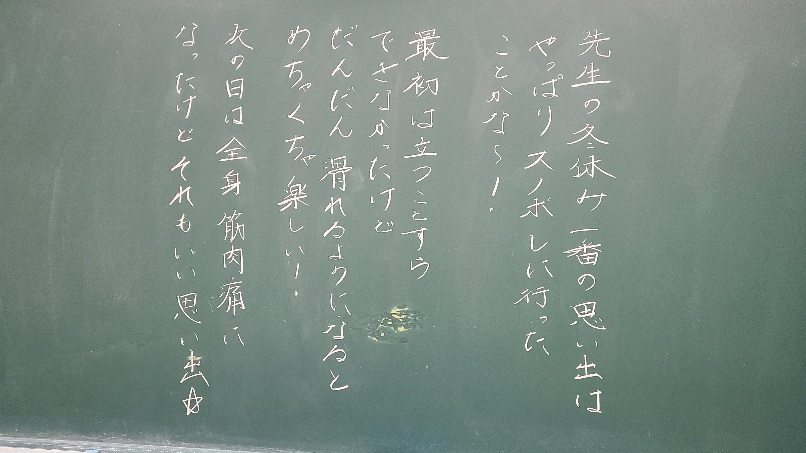 先生の冬休み一番の思い出は
やっぱりスノボしに行った
ことかな〜！
最初は立つことすら
できなかったけど
だんだん滑れるようになると
めちゃくちゃ楽しい！
次の日は全身筋肉痛に
なったけどそれもいい思い出☆